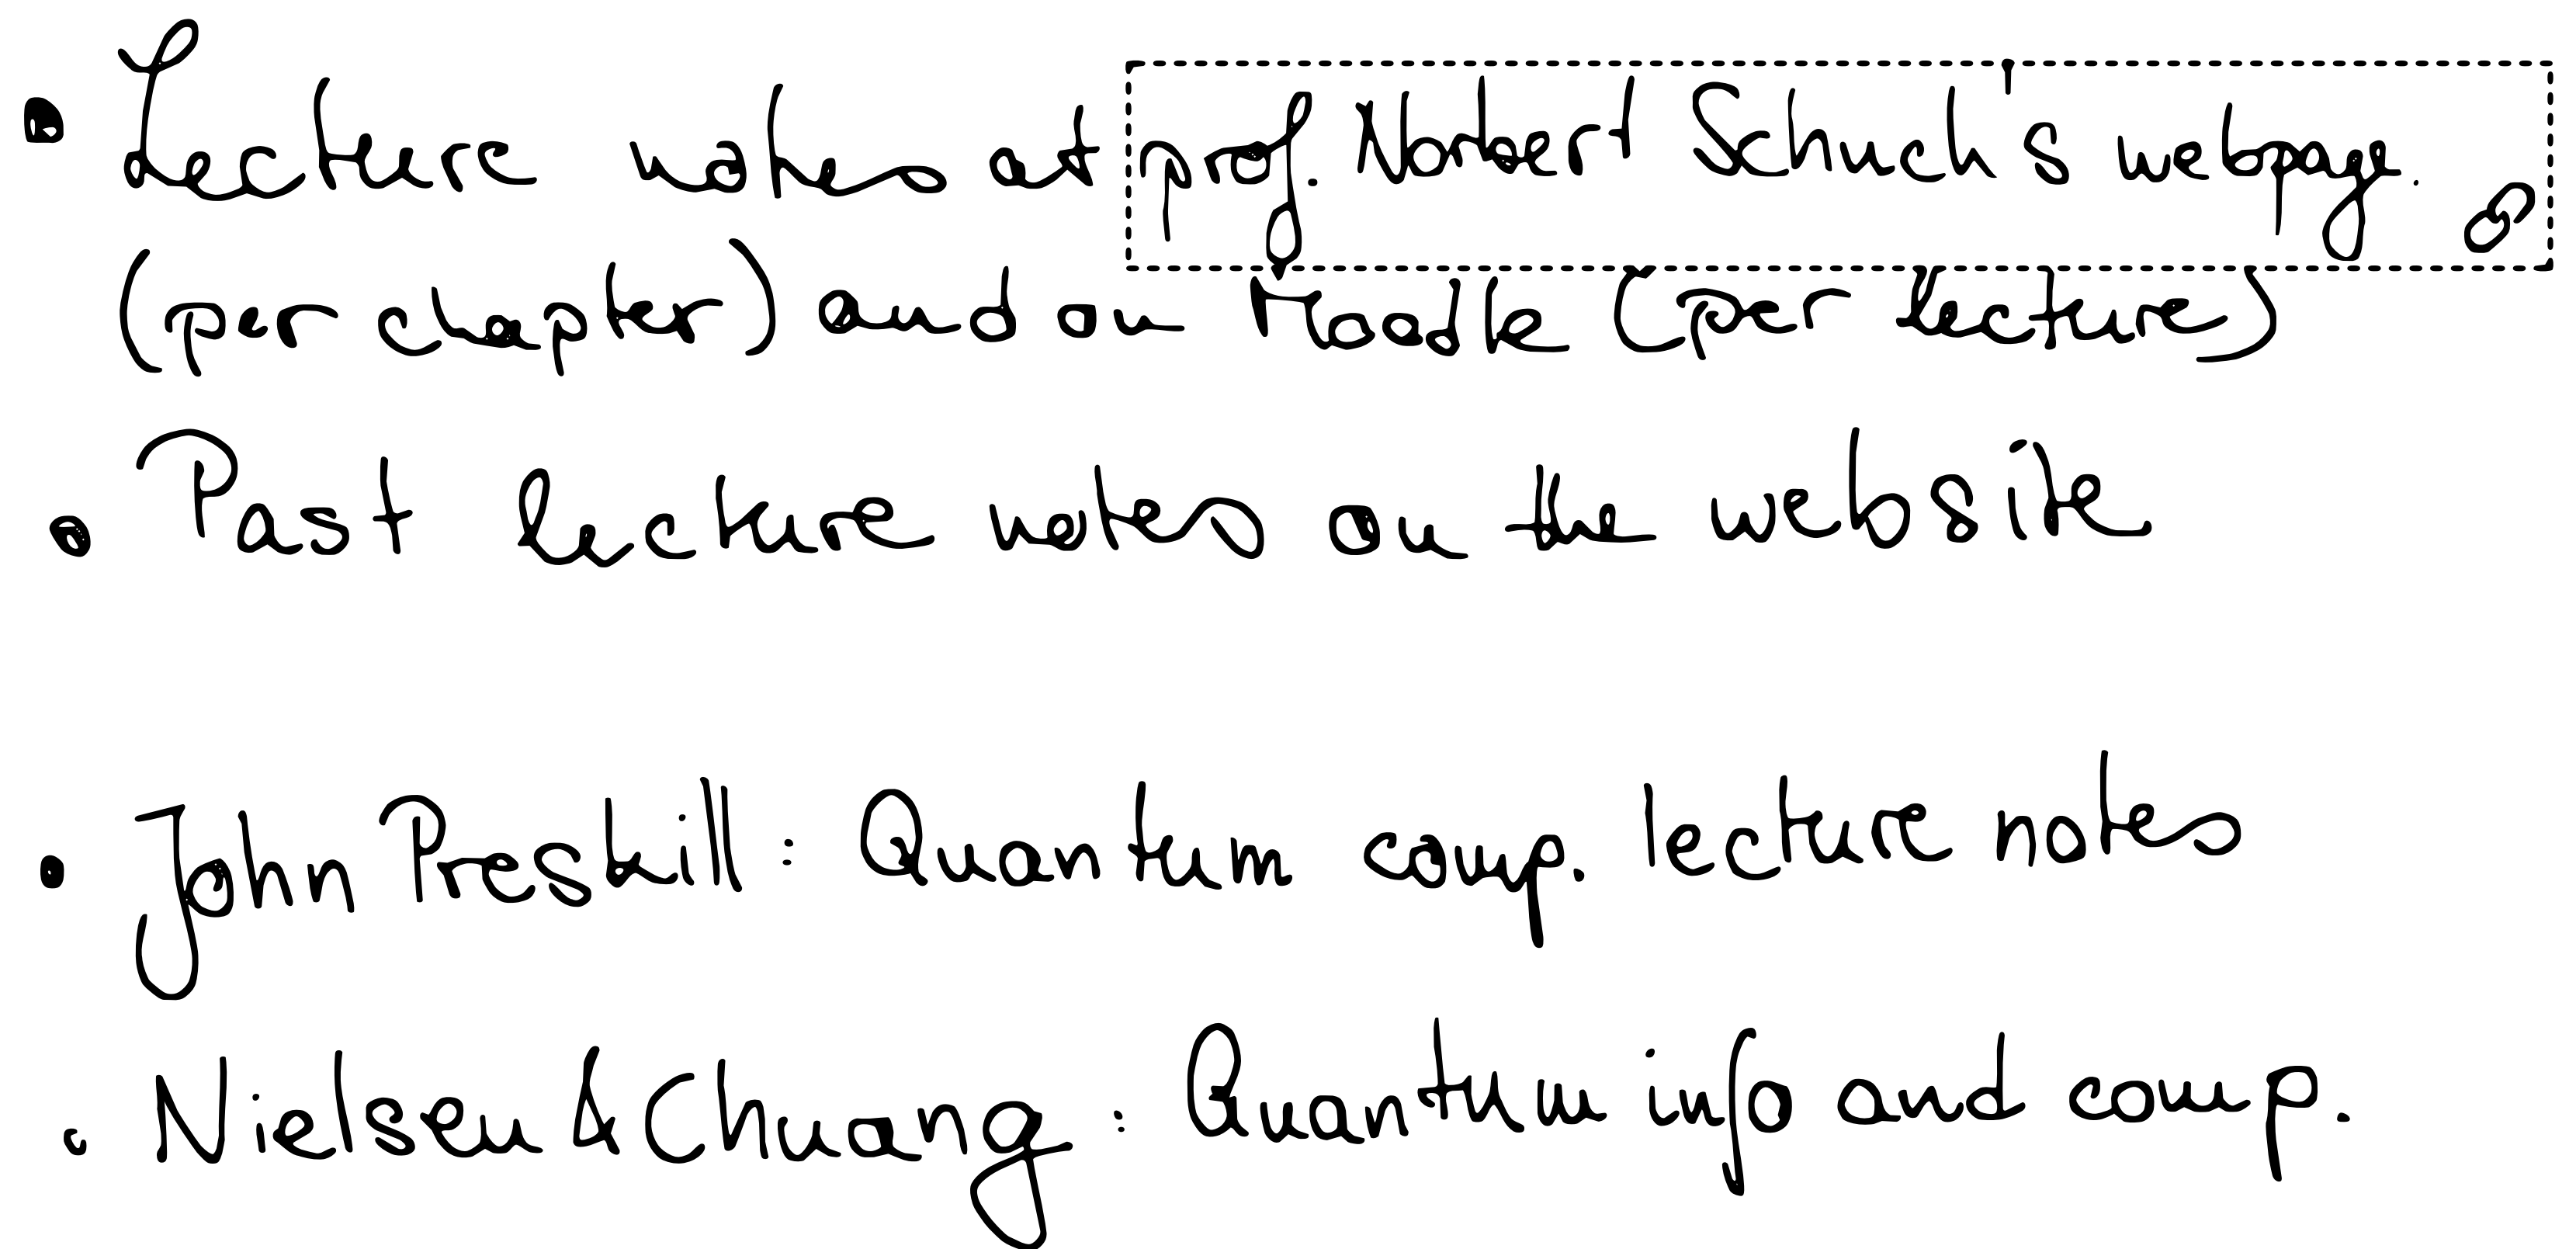 • Lecture notes at prof. Norbert Schuch's webpage.
(per chapter) and on Moodle (per lecture)
• Past lecture notes on the website
• John Preskill: Quantum comp. lecture notes
• Nielsen & Chuang: Quantum info and comp.